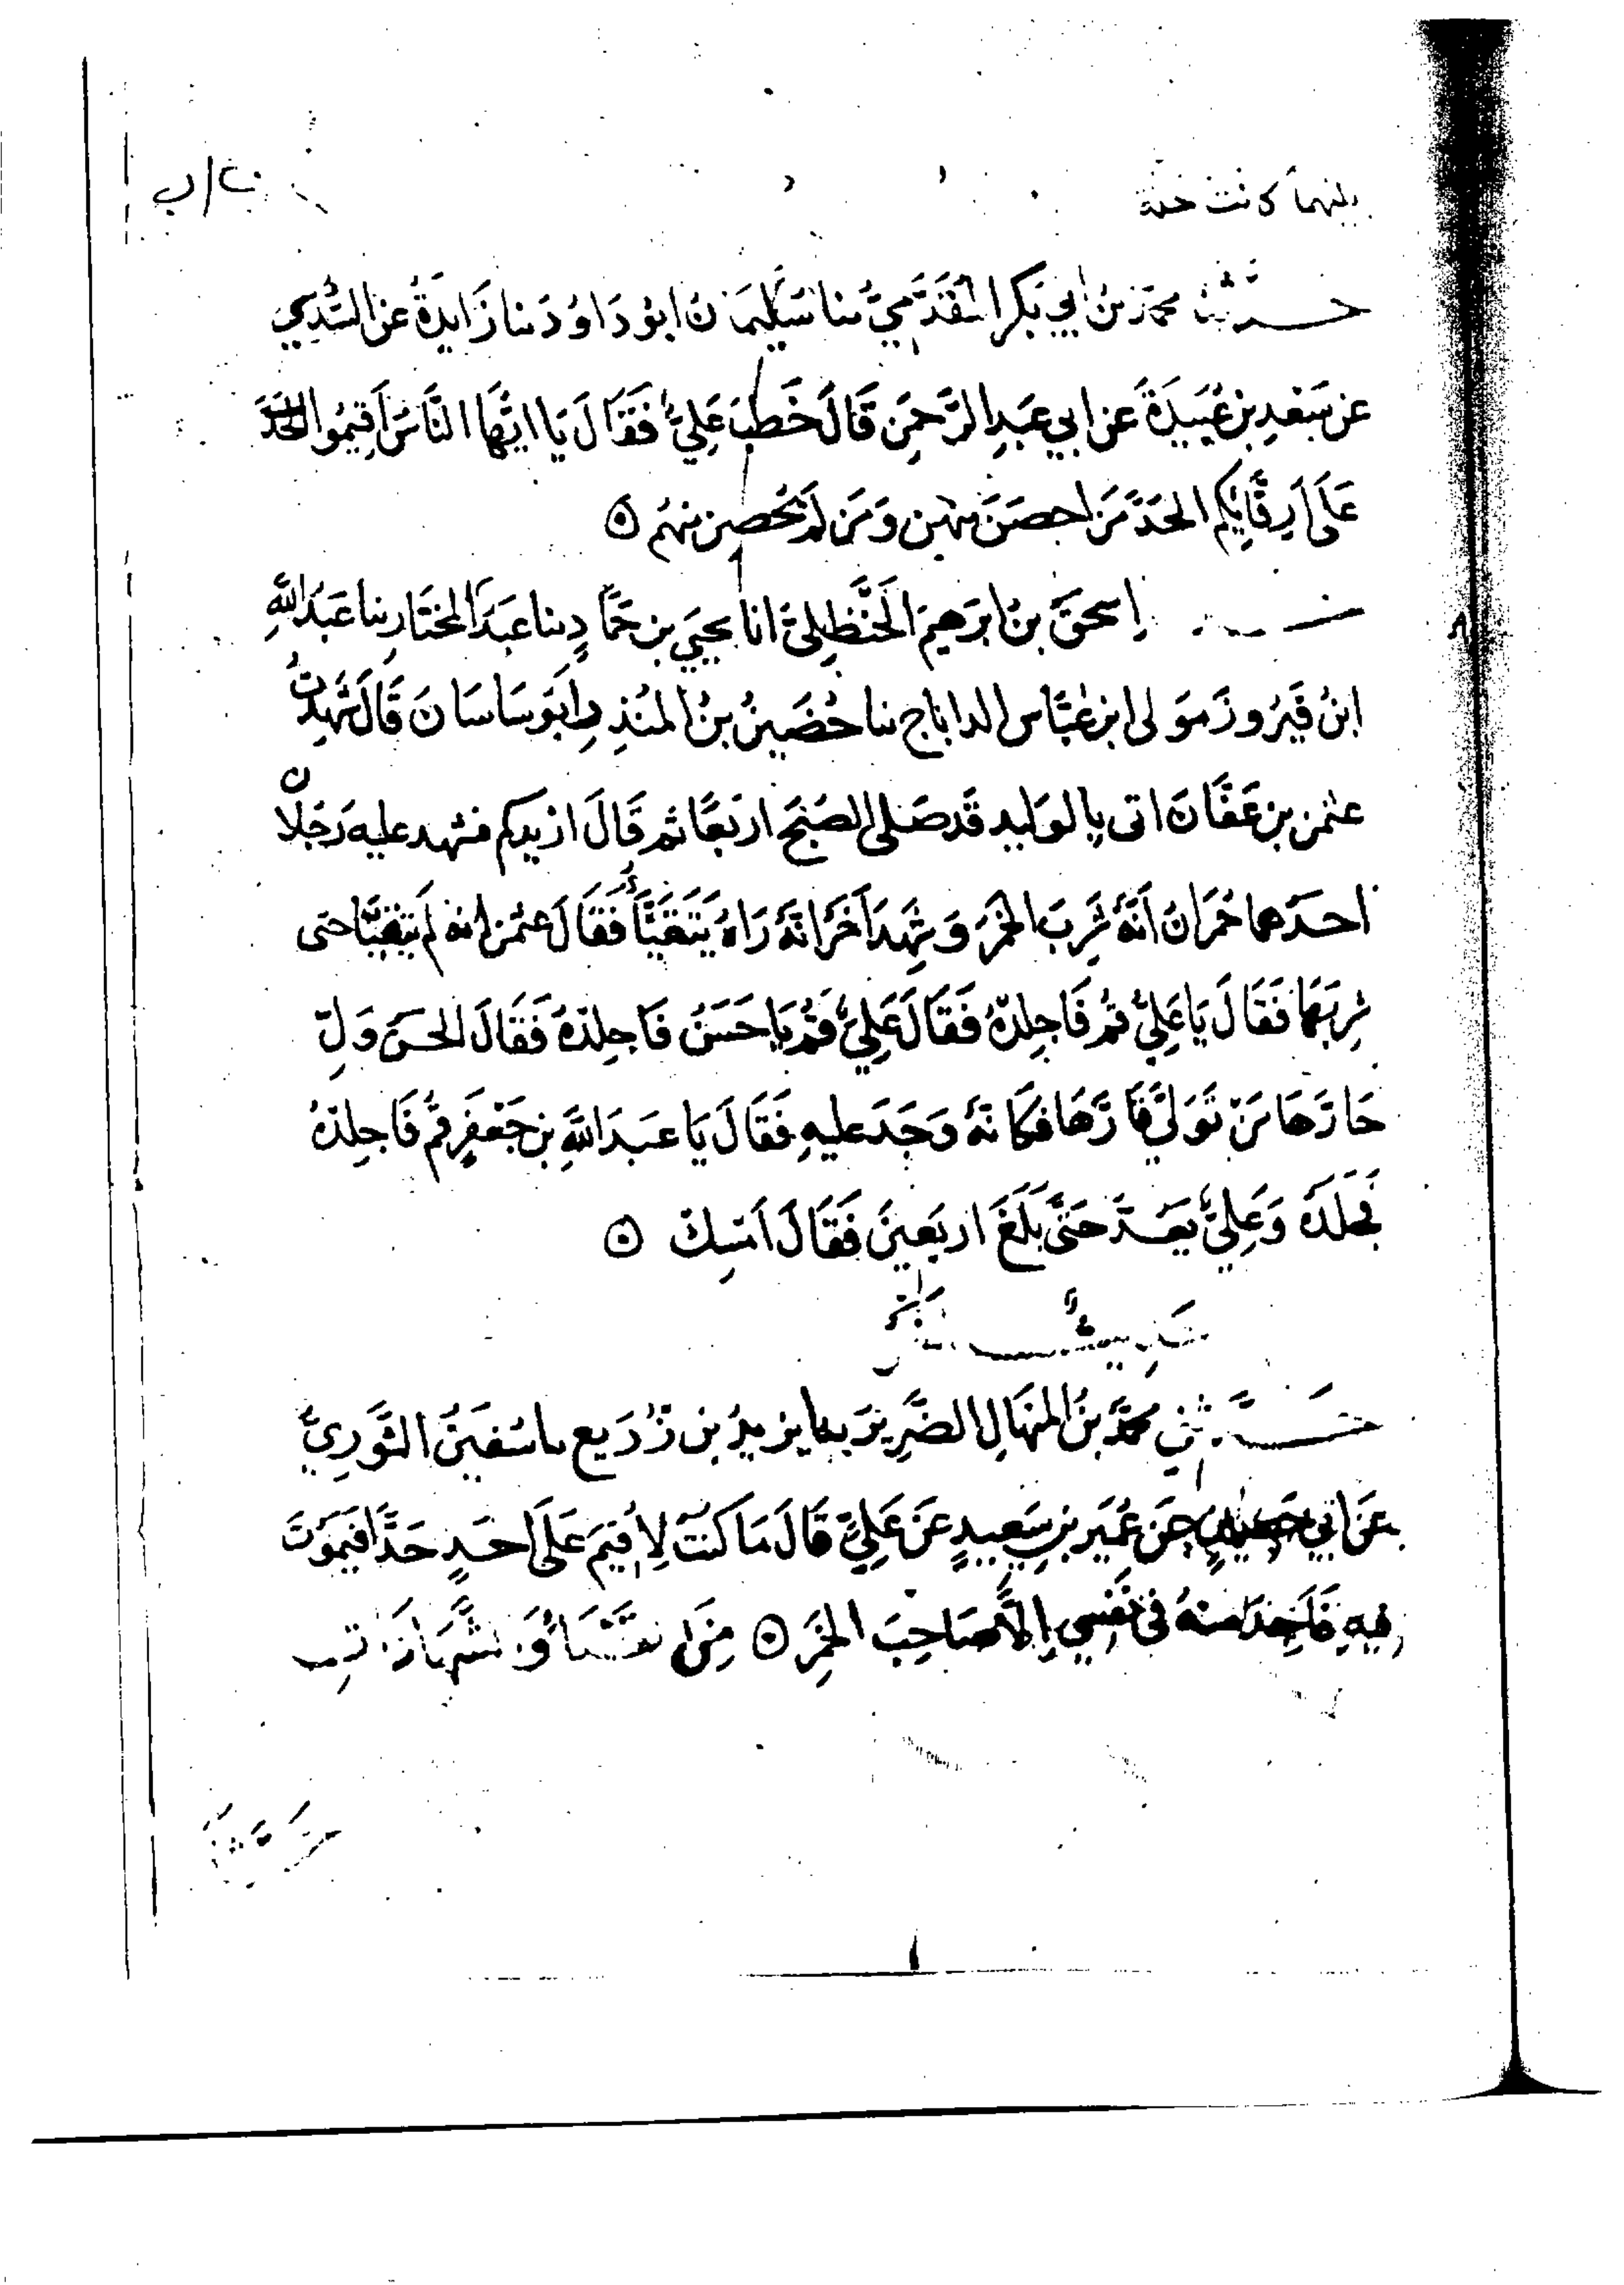 كانت
حدثنا محمد بن ابي بكر المقدمي ثنا سليمان ابو داود ثنا زايدة عن السدي
عن سعد بن عبيدة عن ابي عبد الرحمن قال خطب علي فقال يا ايها الناس اقيموا الحد
على ارقايكم الحد من احصن منهن ومن لم يحصن منهم ٥
اسحق بن ابرهيم الحنظلي انا يحيى بن حماد ثنا عبد المختار ثنا عبد الله
ابن فيروز مولى ابن عباس الداناج ثنا حضين بن المنذر ابو ساسان قال شهدت
عثمن بن عفان اتى بالوليد قد صلى الصبح اربعا ثم قال ازيدكم فشهد عليه رجلان
احدهما حمران انه شرب الخمر وشهد اخر انه راه يتقيأ فقال عثمن انه لم يتقيا حتى
شربها فقال يا علي قم فاجلده فقال علي قم يا حسن فاجلده فقال الحسن ول
حارها من تولى قارها فكانه وجد عليه فقال يا عبد الله بن جعفر قم فاجلده
فجلده وعلي يعد حتى بلغ اربعين فقال امسك ٥
حديث اخر
حدثني محمد بن المنهال الضرير ثنا يزيد بن زريع ثنا سفين الثوري
عن ابي حصين عن عمير بن سعيد عن علي قال ما كنت لاقيم على احد حدا فيموت
فيه فاجد منه في نفسي الا صاحب الخمر ٥